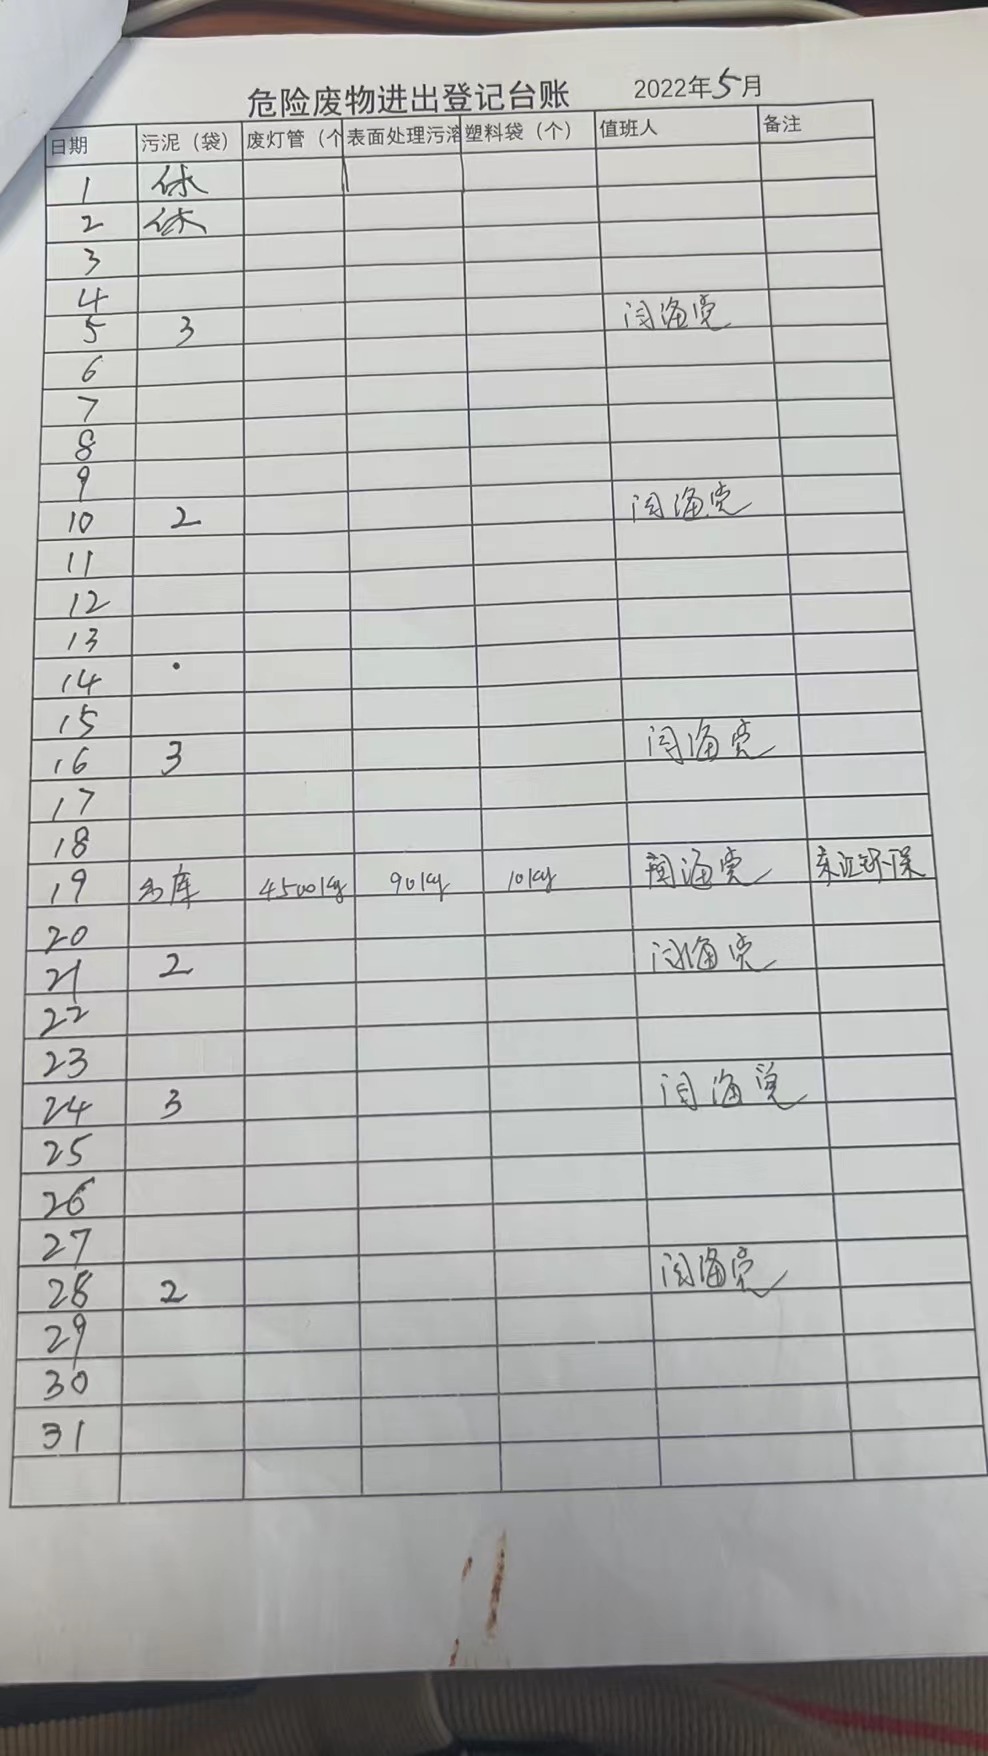 危险废物进出登记台账 2022年5月
日期 污泥（袋） 废灯管（个 表面处理污溶 塑料袋（个） 值班人 备注
1 休
2 休
3
4
5 3 闫海亮
6
7
8
9
10 2 闫海亮
11
12
13
14
15
16 3 闫海亮
17
18
19 出库 4500kg 90kg 10kg 闫海亮 东江环保
20
21 2 闫海亮
22
23
24 3 闫海亮
25
26
27
28 2 闫海亮
29
30
31